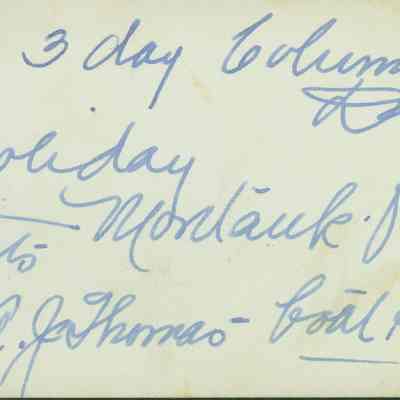 3 day Colum
oliday
to Montauk.
. J. Thomas boat